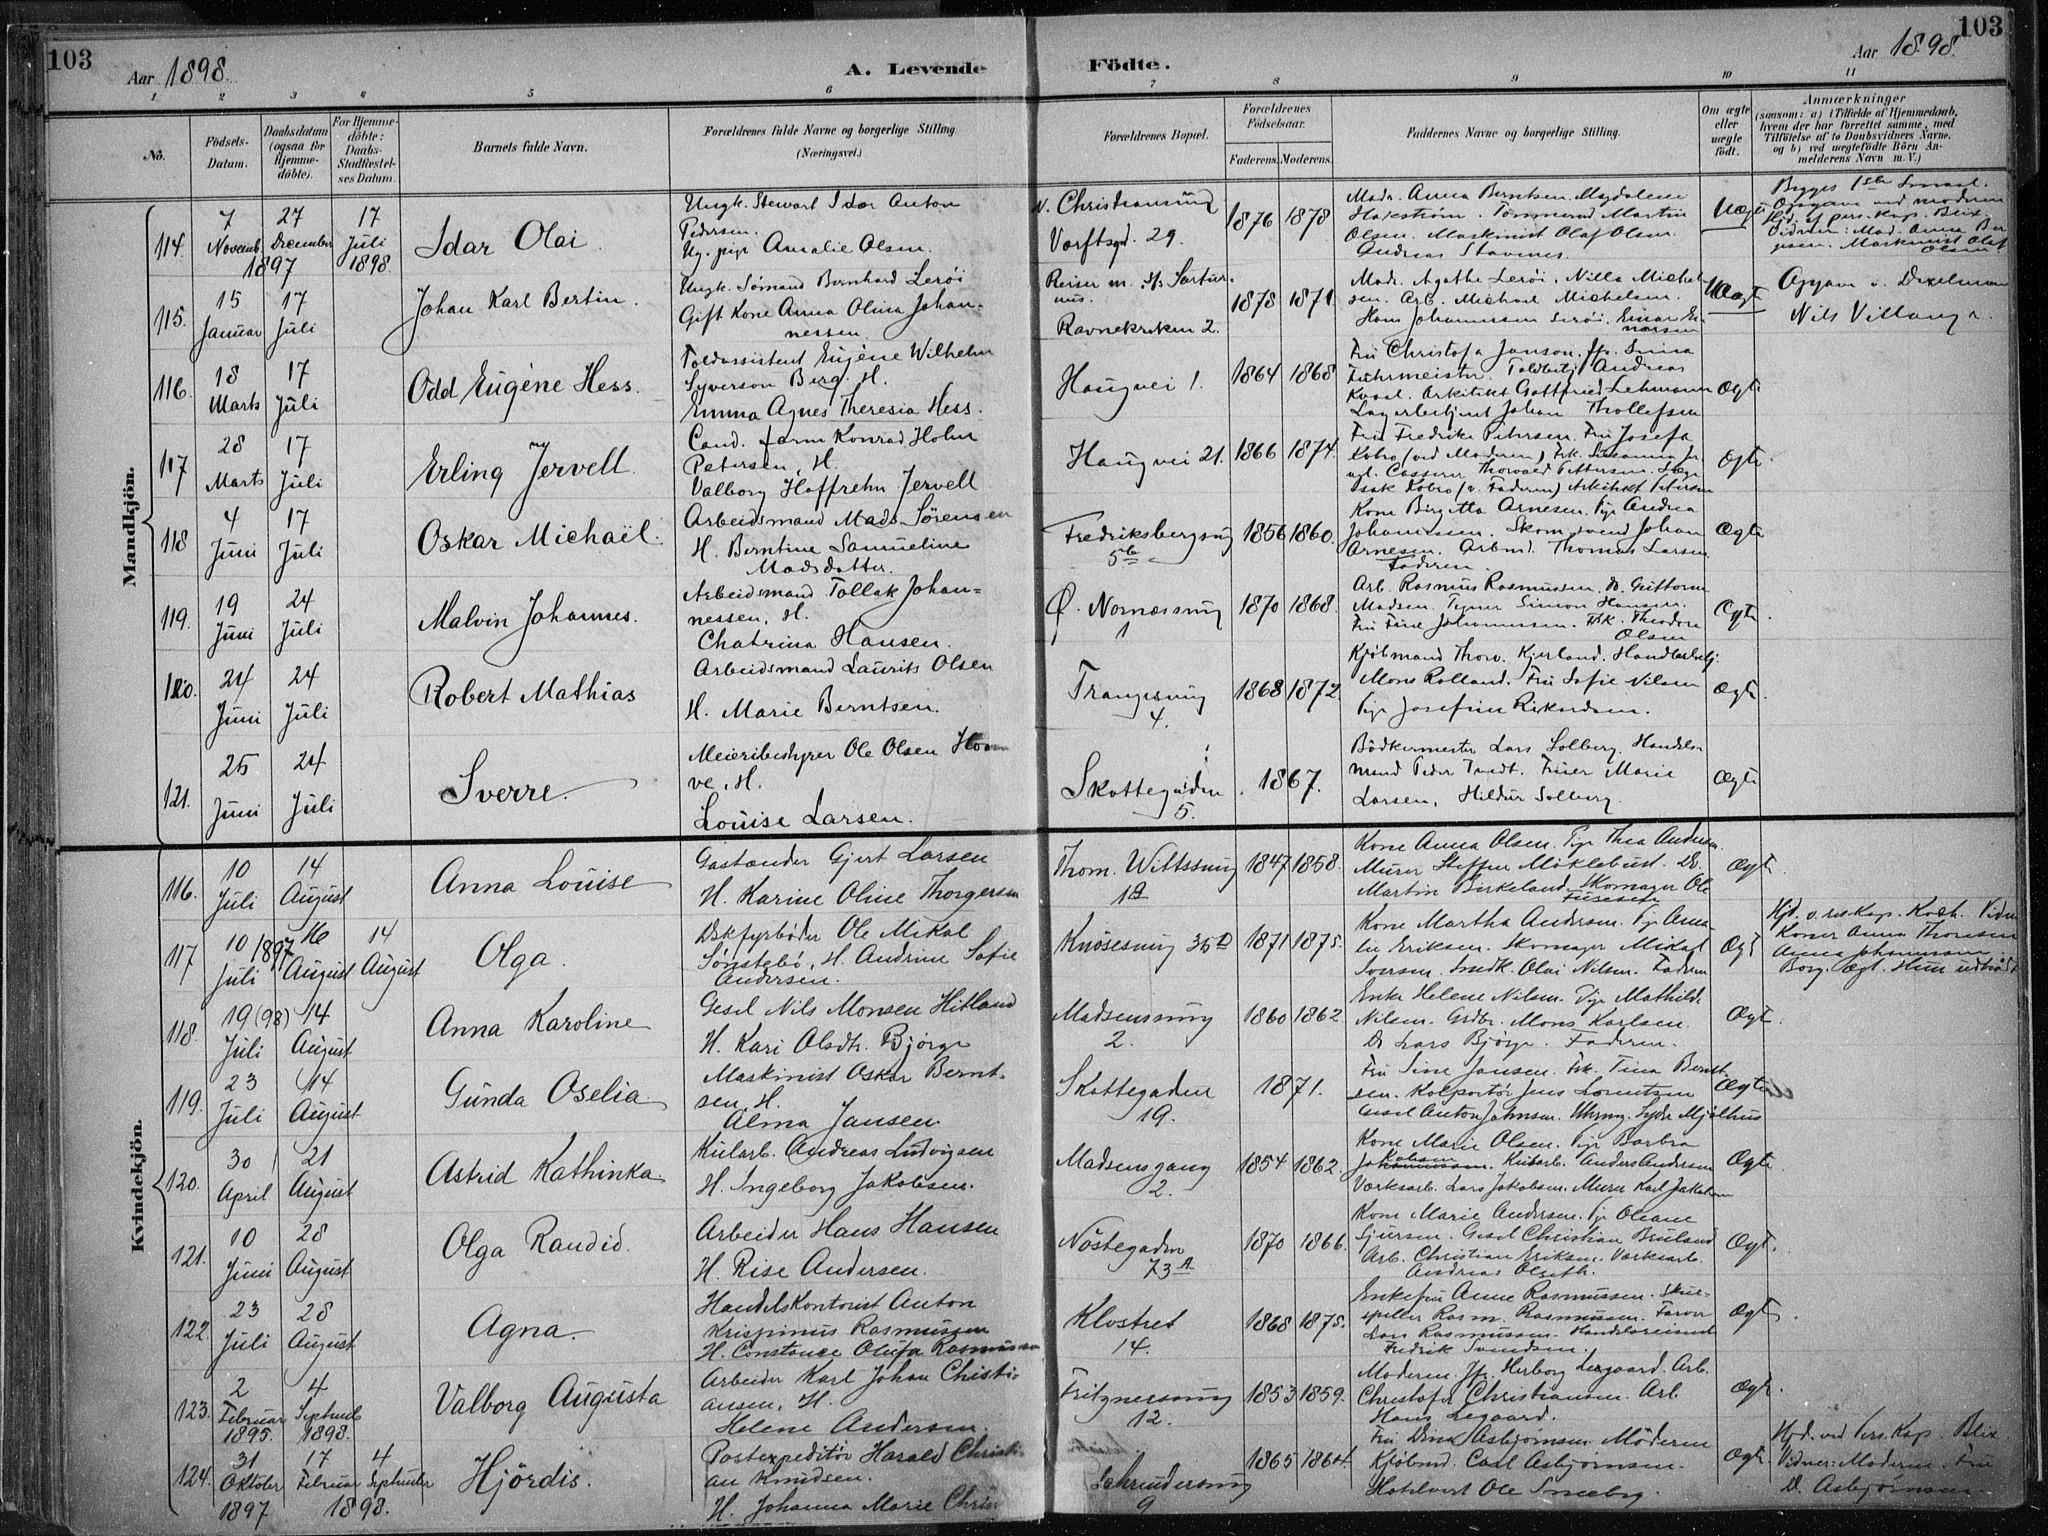 103
Aar 1898.
A. Levende Födte.
Aar 1898.
103
1 2 3 4 5 6 7 8 9 10 11
No.
Födsels-Datum.
Daabsdatum (ogsaa for Hjemmedöbte).
For Hjemmedöbte: Daabs-Stadfæstelses Datum.
Barnets fulde Navn.
Forældrenes fulde Navne og borgerlige Stilling. (Næringsvei.)
Forældrenes Bopæl.
Forældrenes Födselsaar.
Faderens. Moderens.
Faddernes Navne og borgerlige Stilling.
Om ægte eller uægte födt.
Anmærkninger (saasom: a) i Tilfælde af Hjemmedaab, hvem der har forrettet samme, med Tilföielse af to Daabsvidners Navne. og b) ved uægtefödte Börn Anmelderens Navn m. V.)
Mandkjön.
114.
7 Novemb. 1897
27 December
17 Juli 1898.
Idar Olai.
Ungk. Stewart Idar Anton
Pedersen.
Ug. pige Amalie Olsen.
N. Christiansund
Værftsgd. 29.
1876 1878
Madr. Anna Berntsen. Magdalene
Olsen. Maskinist Olaf Olsen.
Andreas Stavenes.
Uægte
115.
15 Januar
17 Juli
Johan Karl Bertin.
Ungk. Sömand Bernhard Lerøi
Gift Kone Anna Olina Johan-
nessen
Ravnekroken 2.
1878 1871.
Mad. Agathe Lerøi. Nilla Michel-
sen. Arb. Michael Michelsen.
Hans Johannessen Lerøi. Einar Ei-
narsen
Uægte
Nils Villanger.
116.
18 Marts
17 Juli
Odd Eugéne Hess.
Toldassistent Eugéne Wilhelm
Syverson Berg. H.
Emma Agnes Theresia Hess.
Haugvei 1.
1864 1868
Fru Christofa Janson. Jfr.
Fuhrmeister. Toldbetj. Andreas
Kvaal. Arkitekt Gottfried Lehmann
Lagerbetjent Johan Thollefsen
Ægte
117.
28 Marts
17 Juli
Erling Jervell.
Cand. farm Konrad Holm
Petersen, H.
Valborg Hoffrehn Jervell
Haugvei 21.
1866 1874.
Fru Fredrike Petersen. Fru Josefa
Kobro (ved Moderen) Frk. Susanna Jer-
vel. Casserer Thorvald Pettersen. Læge
Isak Kobro (v. Faderen) Arkitekt Petersen
Ægte.
118.
4 Juni
17 Juli
Oskar Michaël.
Arbeidsmand Mads Sörensen
H. Berntine Samueline
Madsdatter.
Fredriksbergsug
5b
1856 1860.
Kone Birgitta Arnesen. Pige Andrea
Johannessen. Skom.svend Johan
Arnesen. Arbmd. Thomas Larsen
Faderen.
Ægte
119.
19 Juni
24 Juli
Malvin Johannes.
Arbeidsmand Tollak Johan-
nessen, H.
Chatrina Hansen.
Ø. Nornæssmug
1
1870 1868.
Arb. Rasmus Rasmussen. Do. Guttorm
Madsen. Tegner Simon Hansen.
Fru Fine Johannessen. Frk. Theodora
Olsen
Ægte.
120.
24 Juni
24 Juli
Robert Mathias
Arbeidsmand Laurits Olsen
H. Marie Berntsen.
Trangesmug
4.
1868 1872.
Kjöbmand Thorv. Kjerland. Handlsbetj.
Mons Rolland. Fru Sofie Nilsen
Pige Josefine Rikardsen.
Ægte.
121.
25 Juni
24 Juli
Sverre.
Meieribestyrer Ole Olsen Hov-
ve, H.
Louise Larsen.
Skottegaden
5.
1867.
Bödkermester Lars Solberg. Handels-
mand Peder Tvedt. Fruer Marie
Larsen, Hildur Solberg.
Ægte
Kvindekjön.
116.
10 Juli
14 August
Anna Louise
Gastænder Gjert Larsen
H. Karine Oline Thorgersen
Thom. Wittssmug
1A
1847 1858.
Kone Anna Olsen. Pige Thea Andersen.
Murer Steffen Möklebust. Do.
Martin Birkeland. Skomager Ole
Ægte.
117.
10 Juli 1897
16 August
14 August
Olga.
Dækfyrböder Ole Mikal
Sönstebö, H. Andrine Sofie
Andersen.
Knösesmug 35D
1871 1875.
Kone Martha Andersen. Pige Ama-
lie Eriksen. Skomager Mikal
Iversen. Snedk. Olai Nilsen. Faderen
Ægt
Hjd. v. res. Kap. Koch. Vidn.
Koner Anna Thomsen
Anna Johannessen
118.
19 (98) Juli
14 August
Anna Karoline
Gesel Nils Monsen Hitland
H. Kari Olsdtr. Bjørge
Madsenssmug
2.
1860 1862.
Enke Helene Nilsen. Pige Mathilde
Nilsen. Grdbr. Mons Karlsen.
Do. Lars Bjørge. Faderen.
Ægt.
119.
23 Juli
14 August
Gunda Oselia.
Maskinist Oskar Bernt-
sen, H.
Alma Jansen.
Skottegaden
19.
1871.
Fru Sine Jansen. Frk. Tina Bernt-
sen. Kolportör Jens Lorentzen
Gesel Anton Johnsen. Uhrmg. Syder Mjølhus
Ægte
120.
30 April
21 August
Astrid Kathinka.
Kularb. Andreas Ludvigsen
H. Ingeborg Jakobsen.
Madsensgang
2.
1854 1862.
Kone Marie Olsen. Pige Barbra
Jakobsen. Kularb. Anders Andersen
Værksarb. Lars Jakobsen. Murer Karl Jakobsen
Ægte.
121.
10 Juni
28 August
Olga Randid.
Arbeider Hans Hansen
H. Rise Andersen.
Nöstegaden
73A
1870 1866.
Kone Marie Andersen. Pige Oleane
Sjursen. Gesel Christian Bruland
Arb. Christian Eriksen. Værksarb.
Andreas Olseth.
Ægt.
122.
23 Juli
28 August
Agna.
Handelskontorist Anton
Krispinus Rasmussen
H. Constance Olufa Rasmussen
Klostret
14.
1868 1875.
Enkefru Anne Rasmussen. Skue-
spiller Rasm. Rasmussen. Farver
Lars Rasmussen. Handelsreisende
Fredrik Svendsen.
Ægte.
123.
2 Februar 1895.
4 Septemb. 1898.
Valborg Augusta
Arbeider Karl Johan Christi-
ansen, H.
Helene Andersen.
Fritznersmug
12.
1853 1859.
Moderen. Jfr. Herborg Legaard. Arb.
Christofer Christiansen. Arb.
Hans Legaard.
Ægte.
124.
31 Oktober 1897
17 Februar
4 September
1898.
Hjördis.
Postexpeditör Harald Christi-
an Knudsen.
H. Johanna Marie
Schreudersmug
9
1865 1864.
Fru Dina Asbjørnsen. Moderen
Kjöbmd. Carl Asbjørnsen.
Hotelvert Ole Sneeberg.
Ægte.
Hjd. ved Pers. Kap. Blix.
Vidner: Moderen. Fru
D. Asbjørnsen.